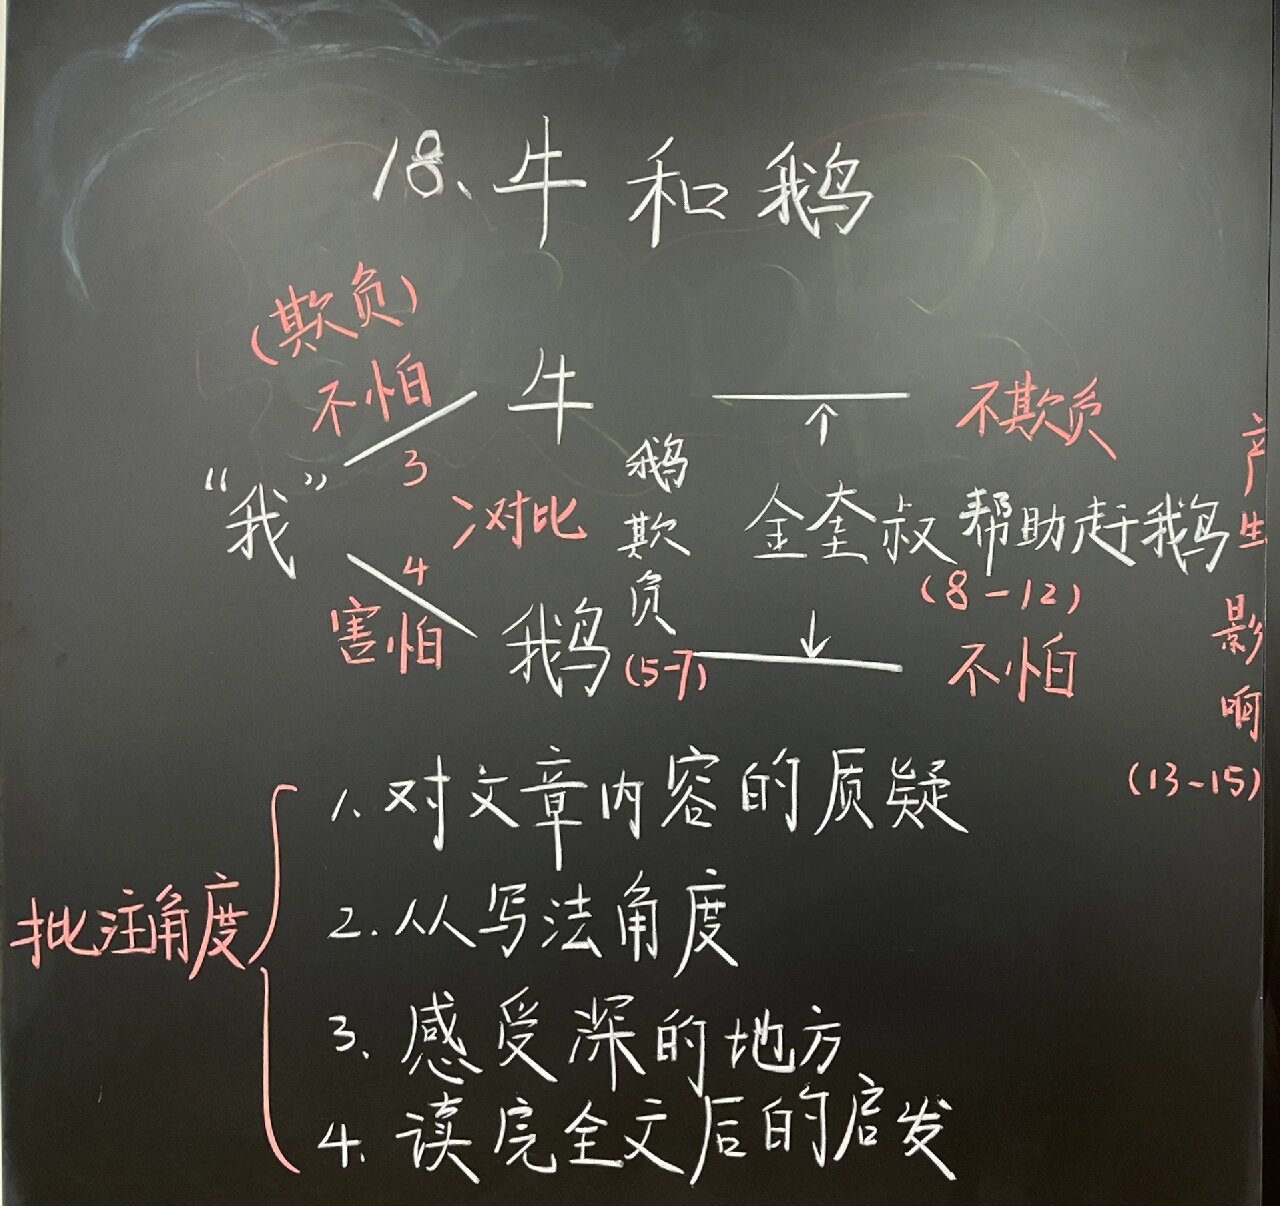 18、牛和鹅
(欺负)
不怕
牛
不欺负
3
“我”
对比
鹅欺负
金奎叔帮助赶鹅
产生影响
4
(8-12)
害怕
鹅
(5-7)
不怕
(13-15)
批注角度
1.对文章内容的质疑
2.从写法角度
3.感受深的地方
4.读完全文后的启发